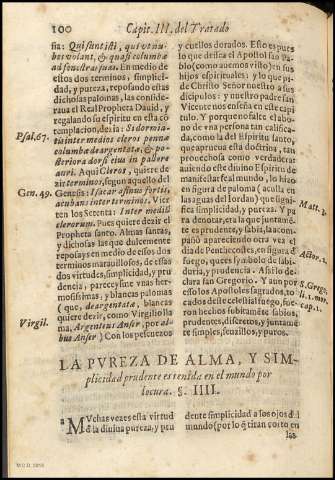 100 Capit. III. del Tratado
sia: Qui sunt isti, qui vt nu
bes volant, & quasi columbæ
ad fenestras suas. En medio de
estos dos terminos, simplici-
dad, y pureza, reposando estas
dichosas palomas, las conside-
raua el Real Propheta Dauid, y
regalando su espiritu en esta có
templacion, dezia: Si dormia-
tis inter medios cleros pennæ
columbæ deargentatæ, & po-
steriora dorsi eius in pallore
auri. Aqui Cleros, quiere de-
zir terminos, segun aquello del
Genesis: Isacar asinus fortis,
accubans inter terminos. Vier
ten los Setenta: Inter medios
clerorum. Pues quiere dezir el
Propheta santo. Almas santas,
y dichosas las que dulcemente
reposays en medio de essos dos
terminos marauillosos, de essas
dos virtudes, simplicidad, y pru
dencia; pareceysme vnas her-
mosissimas, y blancas palomas
(que, deargentata, blancas
quiere dezir, como Virgilio lla
ma, Argenteus Anser, por al-
bus Anser) Con los pescueços
Psal. 67.
Gen. 49.
Virgil.
y cuellos dorados. Esto es pues
lo que dessea el Apostol sao Pa-
blo (como auemos visto) en sus
hijos espirituales: y lo que pi-
de Christo Señor nuestro a sus
dicipulos: y nuestro padre san
Vicente nos enseña en este capi
tulo. Y porque no falte el abo-
no de vna persona tan califica-
da, como la del Espiritu santo,
que aprueua esta doctrina, tan
prouechosa como verdadera:
autiendo este diuino Espiritu de
mostrarse en el mundo, lo hizo
en figura de paloma (aculla en
las aguas del Iordan) que signi
fica simplicidad, y pureza. Y pa
ra denotar, era la que juntamẽ-
te es prudente, y sabia, la acom-
pañò apareciendo otra vez el
dia de Pentecostes, en figura d̃
fuego, que es symbolo de sabi-
duria, y prudencia. Assi lo de-
clara san Gregorio. Y aun por
esso los Apostoles sagrados, to
cados deste celestial fuego, fue-
ron hechos subitamẽte sabios,
prudentes, discretos, y juntamẽ
te simples, senzillos, y puros.
Matt. 3.
Actor. 2.
S. Grego.
cap. 1.
LA PVREZA DE ALMA, Y SIM-
plicidad prudente estendida en el mundo por
locura. §. IIII.
Muchas vezes esta virtud
d̃ la diuina pureza, y pru
dente simplicidad a los ojos del
mundo (por lo q̃ tiran coito en
las